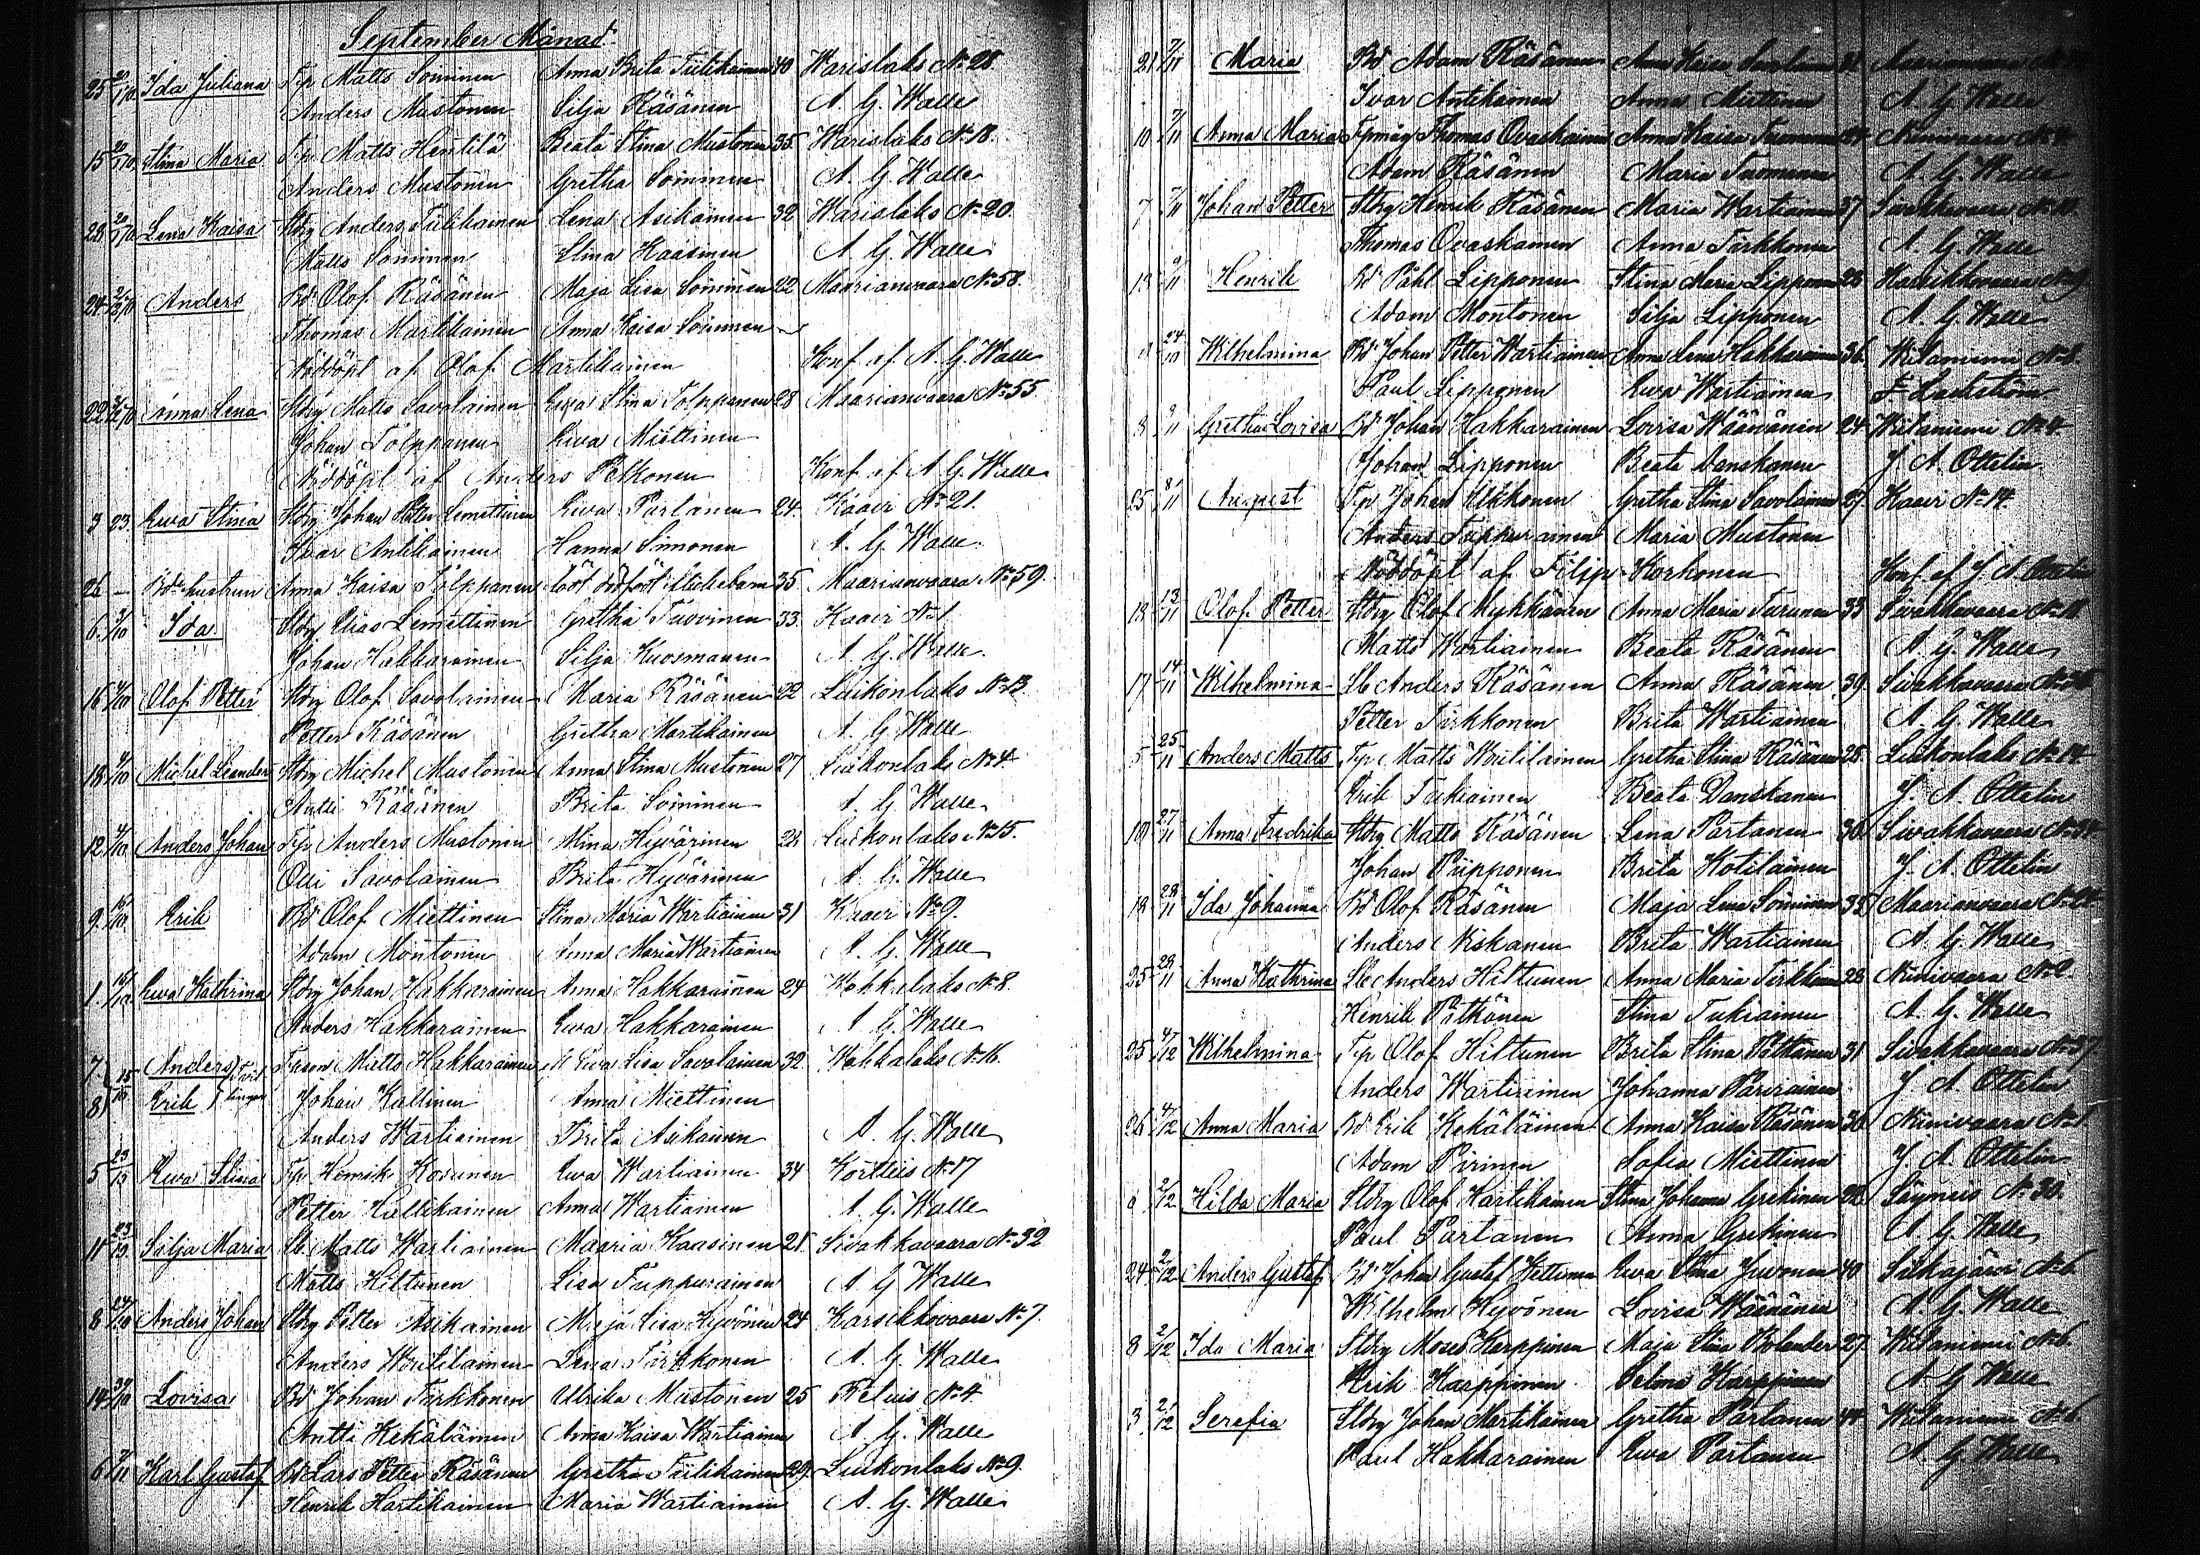 September Månad
25 20/10 Ida Juliana Tp Matts Soininen Anna Brita Tiilikainen 40 Warislaks No 28.
Anders Mustonen Silja Räsänen A. G. Walle
15 20/10 Stina Maria Tp Matts Hentilä Beata Stina Mustonen 35. Warislaks No 18.
Anders Mustonen Gretha Soininen A. G. Walle
28 20/10 Lena Kaisa Stbg Anders Tiilikainen Lena Asikainen 32 Warislaks No 20.
Matts Soininen Stina Kaasinen A. G. Walle
24 Anders Bd. Olof Räsänen Maja Lisa Soininen 22 Maarianvaara No 58.
Thomas Martikainen Anna Kaisa Soininen
Nöddöpt af Olof Martikainen Konf af A. G. Walle
22 Anna Lena Stbg Matts Savolainen Ewa Stina Tolppanen 28 Maarianvaara No 55.
Johan Tolppanen Ewa Miettinen
Nöddöpt af Anders Pelkonen Konf af A. G. Walle
3 23. Ewa Stina Stbg Johan Petter Lemettinen Ewa Partanen 24. Kaavi No 21.
Ivar Antikainen Hanna Simonen A. G. Walle
26 — Bde hustrun Anna Kaisa Tolppanen 35 Maarianvaara No 59.
6. Ida Stbg Elias Lemettinen Gretha Tuovinen 33. Kaavi No 1.
Johan Hakkarainen Silja Kuosmanen A. G. Walle
16 Olof Petter Stbg Olof Savolainen Maria Räsänen 22 Luikonlaks No 13.
Petter Räsänen Gretha Martikainen A. G. Walle
18 Michel Leander Stbg Michel Mustonen Anna Stina Mustonen 27 Luikonlaks No 4.
Antti Räsänen Brita Soininen A. G. Walle
12 Anders Johan Tp Anders Mustonen Mina Hyvärinen 28 Luikonlaks No 15.
Olli Savolainen Brita Hyvärinen A. G. Walle
9. Erik Bd Olof Miettinen Stina Maria Wartiainen 31 Kaavi No 9.
Adam Montonen Anna Maria Wartiainen A. G. Walle
1. Ewa Kathrina Stbg Johan Hakkarainen Anna Hakkarainen 24 Kokkalaks No 8.
Anders Hakkarainen Ewa Hakkarainen A. G. Walle
7 Anders Matts Hakkarainen Ewa Lisa Savolainen 32. Kokkalaks No 16.
8 Erik Johan Kallinen Anna Miettinen
Anders Wartiainen Brita Asikainen A. G. Walle
5 Ewa Stina Tp Henrik Kosunen Ewa Wartiainen 34 Korteis No 17
Petter Hullikainen Anna Wartiainen A. G. Walle
11 Silja Maria Lb Matts Wartiainen Maaria Kaasinen 21. Sivakkavaara No 32
Matts Hiltunen Lisa Tuppurainen A. G. Walle
8 Anders Johan Stbg Petter Asikainen Maja Lisa Hyvönen 24 Karsikkovaara No 7.
Anders Woutilainen Lena Tirkkonen A. G. Walle
14 Lovisa Bd Johan Tirkkonen Ulrika Mustonen 25 Reluis No 4.
Antti Kekäläinen Anna Kaisa Wartiainen A. G. Walle
6 Karl Gustaf Bd Lars Petter Räsänen Gretha Tiilikainen 29. Luikonlaks No 9.
Henrik Hartikainen Maria Wartiainen A. G. Walle
21 7/11 Maria Bd Adam Räsänen
Ivar Antikainen Anna Miettinen A. G. Walle
10 7/11 Anna Maria Thomas Ovaskainen Anna Kaisa Niinivaara
Adam Räsänen Maria A. G. Walle
7 7/11 Johan Petter Stbg Henrik Räsänen Maria Wartiainen 37 Sivakkavaara
Thomas Ovaskainen Anna Tirkkonen A. G. Walle
13 9/11 Henrik Bd Påhl Lipponen Stina Maria Lipponen 28 Karsikkovaara No 9
Adam Montonen Silja Lipponen A. G. Walle
24/10 Wilhelmina Bd Johan Petter Wartiainen Anna Lena Hakkarainen 36. Wiitaniemi No 8
Paul Lipponen Ewa Wartiainen
8 9/11 Gretha Lovisa Bd Johan Hakkarainen Lovisa Wäänänen 24 Wiitaniemi No 4.
Johan Lipponen Beata Danskanen J. A. Ottelin
25 8/11 August Tp Johan Ukkonen Gretha Stina Savolainen 27. Kaavi No 14.
Anders Tuppurainen Maria Mustonen
Nöddöpt af Filip Korhonen Konf af J. A. Ottelin
18 13/11 Olof Petter Stbg Olof Mykkänen Anna Maria Turunen 33 Sivakkavaara
Matts Wartiainen Beata Räsänen A. G. Walle
17 14/11 Wilhelmina Lb Anders Räsänen Anna Räsänen 39. Sivakkavaara
Petter Tirkkonen Brita Wartiainen A. G. Walle
5 25/11 Anders Matts Tp Matts Woutilainen Gretha Stina Räsänen 25. Luikonlaks No 14
Erik Tukiainen Beata Danskanen J. A. Ottelin
10 27/11 Anna Fredrika Stbg Matts Räsänen Lena Partanen 30. Sivakkavaara
Johan Piipponen Brita Kotilainen J. A. Ottelin
18 28/11 Ida Johanna Bd Olof Räsänen Maja Lena Soininen 35 Maarianvaara
Anders Niskanen Brita Wartiainen A. G. Walle
25 28/11 Anna Kathrina Lb Anders Hiltunen Anna Maria Tirkkonen 28 Niinivaara No 2.
Henrik Pitkänen Stina Tukiainen A. G. Walle
25 4/12 Wilhelmina Tp Olof Hiltunen Brita Stina Pitkänen 31 Sivakkavaara No 37
Anders Wartiainen Johanna Parviainen J. A. Ottelin
26 4/12 Anna Maria Bd Erik Kekäläinen Anna Kaisa Räsänen 30 Niinivaara No 1
Adam Pirinen Sofia Miettinen J. A. Ottelin
6 2/12 Hilda Maria Stbg Olof Hartikainen Stina Johanna Grekinen 22. Säyneis No 30.
Paul Partanen Anna Grekinen A. G. Walle
24 2/12 Anders Gustaf Bd Johan Gustaf Kettunen Ewa Stina Juvonen 40 Siikajärvi No 6
Wilhelm Hyvönen Lovisa Wäänänen A. G. Walle
8 2/12 Ida Maria Stbg Moses Karppinen Maja Stina Bolander 27. Wiitaniemi No 6.
Erik Karppinen Selma Karppinen A. G. Walle
3 2/12 Serafia Stbg Johan Martikainen Gretha Partanen 44 Wiitaniemi No 6
Paul Hakkarainen Ewa Partanen A. G. Walle